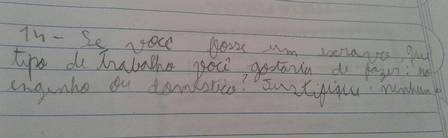 14 - Se você fosse um escravo, que
tipo de trabalho você gostaria de fazer: no
engenho ou doméstico? Justifique. nenhum